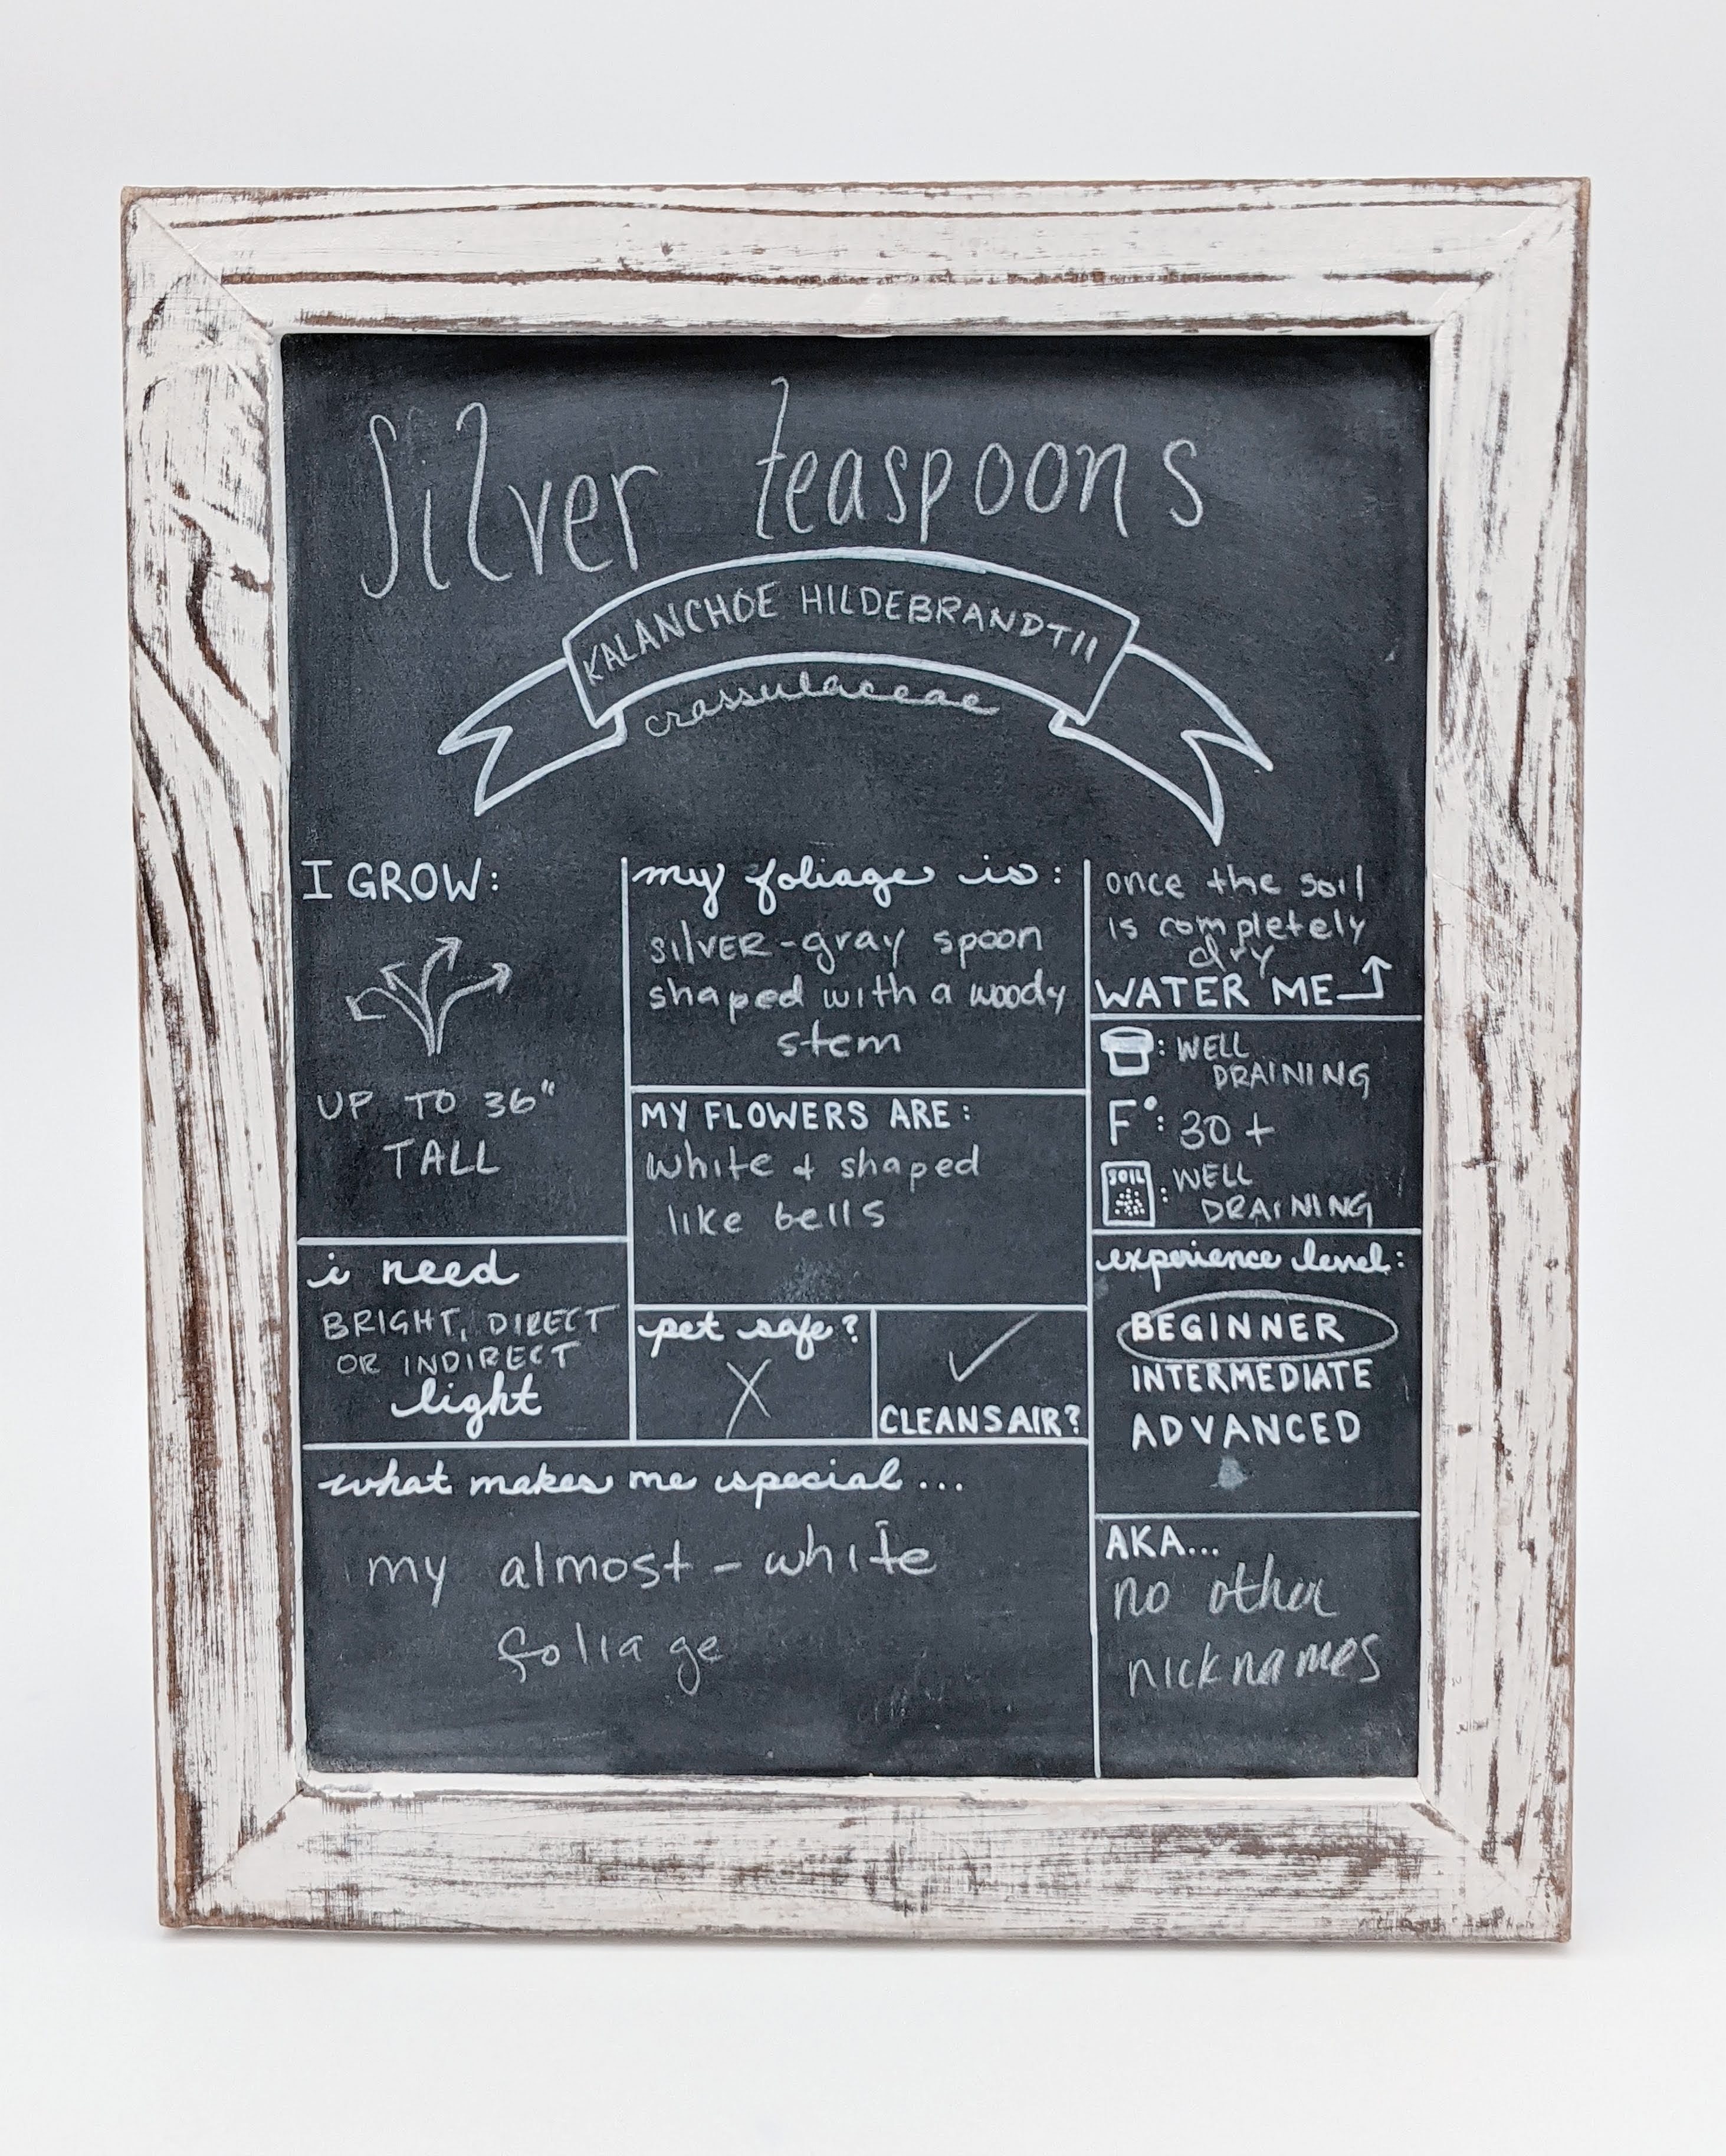 Silver teaspoons
KALANCHOE HILDEBRANDTII
crassulaceae
I GROW:
UP TO 36"
TALL
i need
BRIGHT, DIRECT
OR INDIRECT
light
my foliage is:
silver-gray spoon
shaped with a woody
stem
MY FLOWERS ARE:
white + shaped
like bells
pet safe?
X
✓
CLEANS AIR?
once the soil
is completely
dry
WATER ME
: WELL
DRAINING
F°: 30+
SOIL
: WELL
DRAINING
experience level:
BEGINNER
INTERMEDIATE
ADVANCED
what makes me special...
my almost-white
foliage
AKA...
no other
nicknames